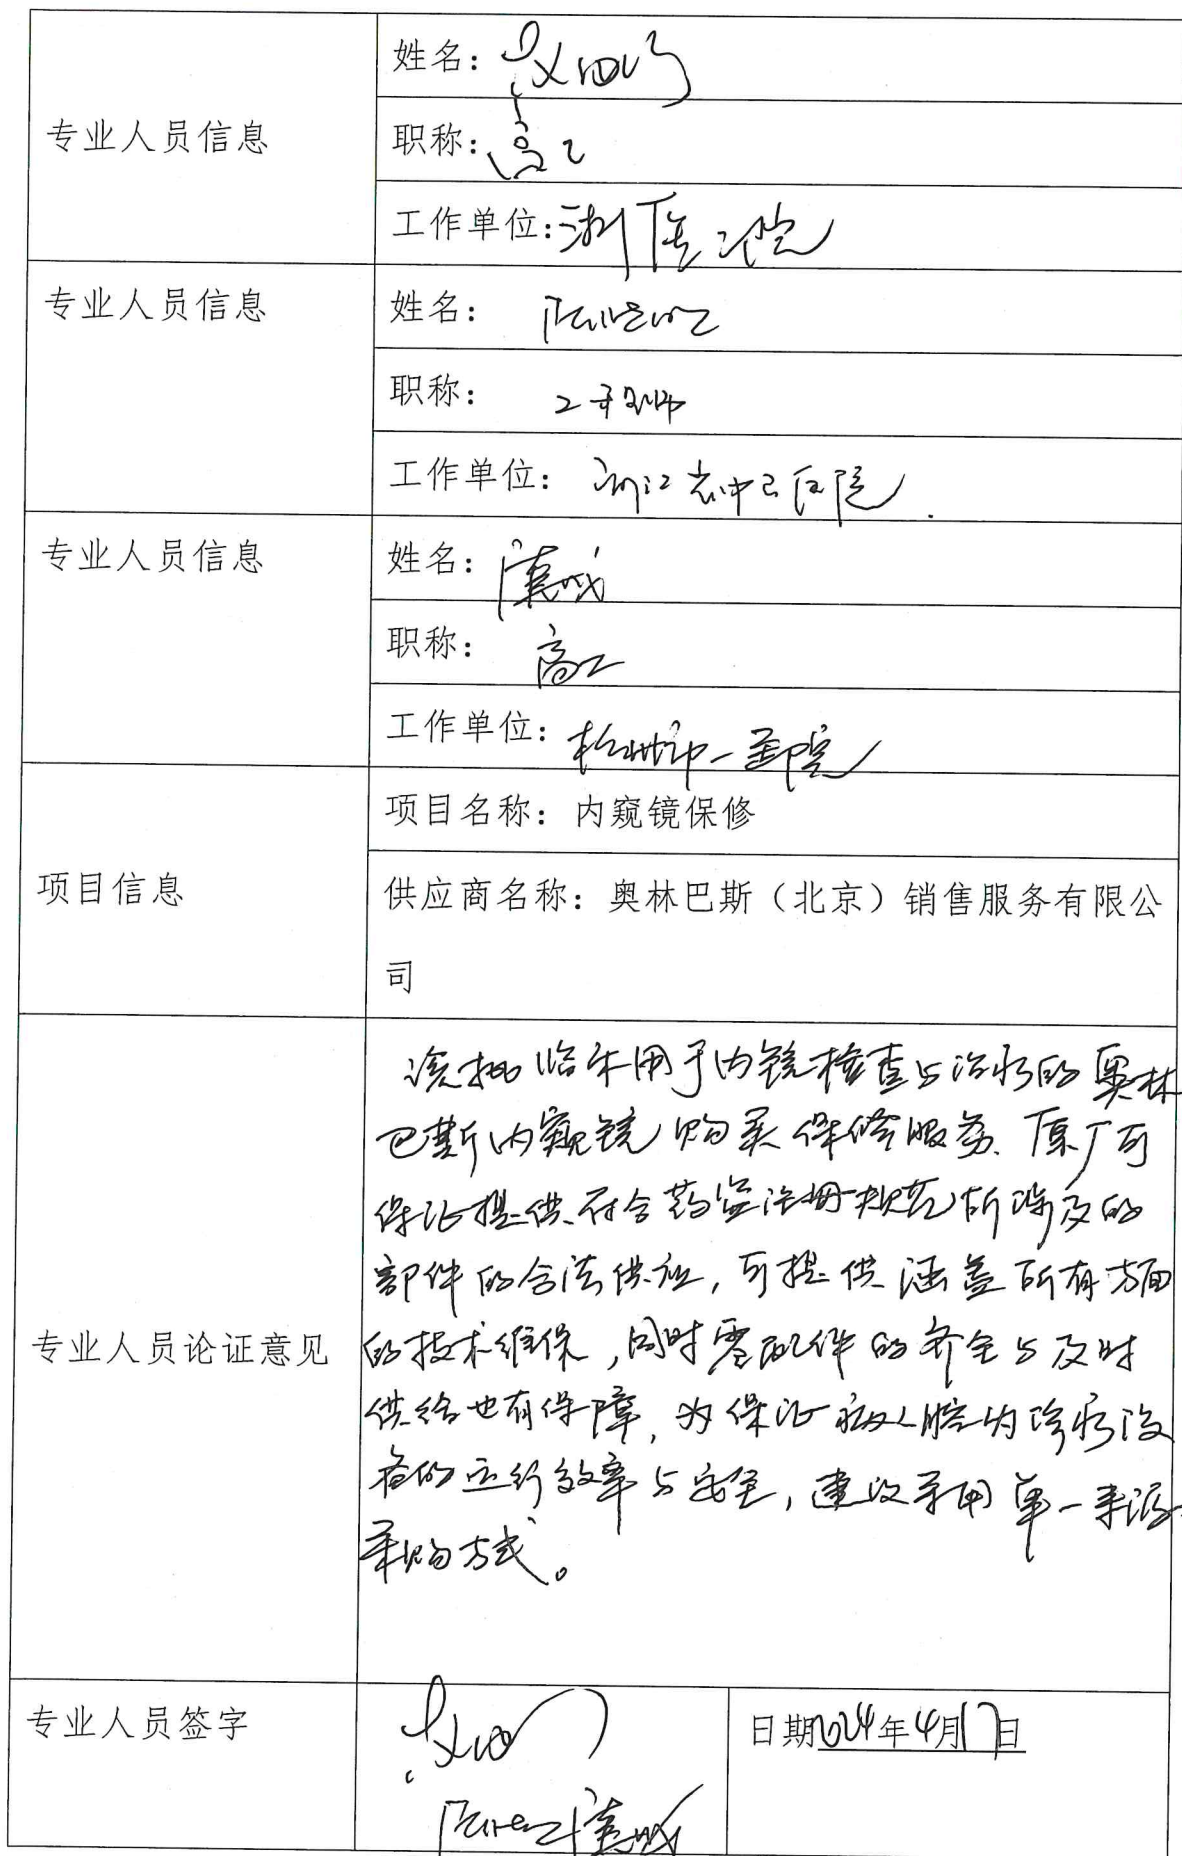 姓名：
专业人员信息
职称：高工
工作单位：浙医二院
专业人员信息
姓名：
职称：工程师
工作单位：浙江省中医院
专业人员信息
姓名：
职称：高工
工作单位：杭州市一医院
项目名称：内窥镜保修
项目信息
供应商名称：奥林巴斯（北京）销售服务有限公
司
该批临床用于内镜检查与治疗的奥林
巴斯内窥镜购买保修服务。原厂可
保证提供符合药监注册规范所涉及的
部件的合法供应，可提供涵盖所有方面
专业人员论证意见
的技术维保，同时零配件的齐全与及时
供给也有保障，为保证病人腔内诊疗设
备的运行效率与安全，建议采用单一来源
采购方式。
专业人员签字
日期2024年4月17日